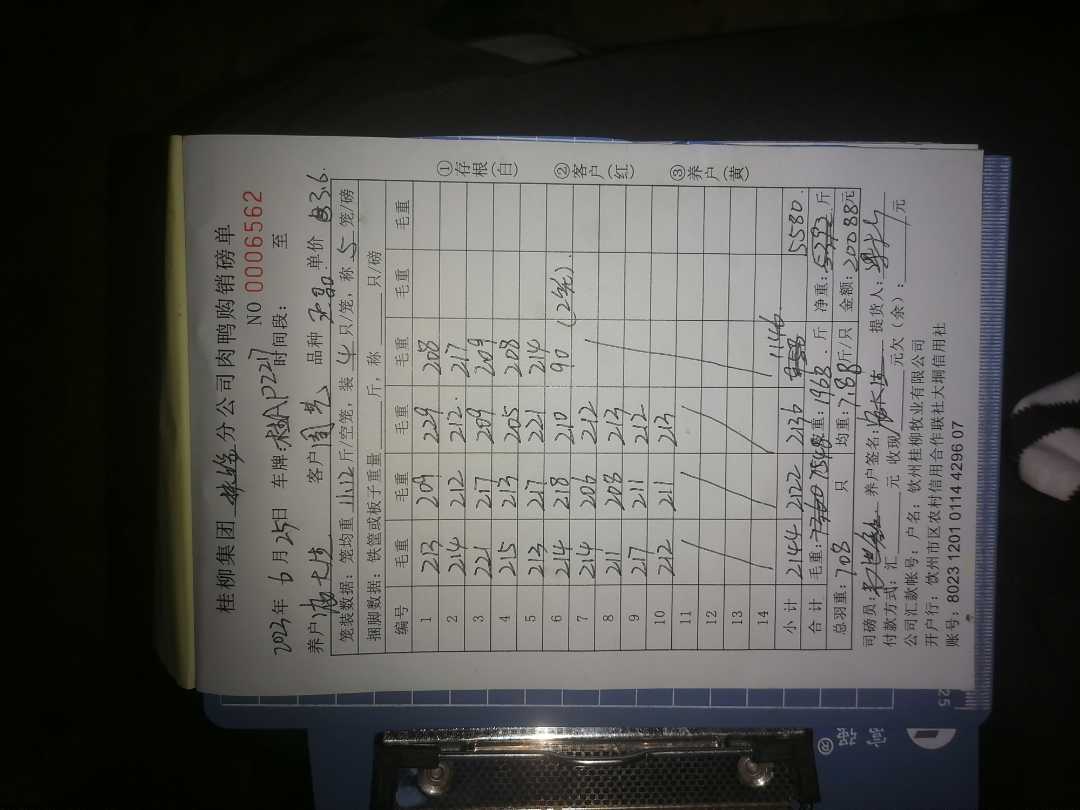 桂柳集团 分公司肉鸭购销磅单
NO 0006562
2023年 6 月 25日 车牌: 桂AP221 时间段: 至
养户 客户 周 品种 单价 3.6.
笼装数据: 笼均重 11.12 斤/空笼, 装 4 只/笼, 称 5 笼/磅
捆脚数据: 铁筐或板子重量 斤, 称 只/磅
编号 毛重 毛重 毛重 毛重 毛重 毛重
1 213 209 229 208
2 214 212 212. 217
3 221 217 209 209
4 215 213 205 208
5 213 217 221 214
6 214 218 210 90 (2笼).
7 214 206 212
8 211 208 213
9 217 211 212
10 212 211 213
11
12
13
14
小计 2144 2122 2136 1146 5580.
合计 毛重: 7548 重: 1968. 斤 净重: 斤
总羽重: 708 只 均重: 7.88斤/只 金额: 20088元
司磅员: 养户签名: 提货人:
付款方式: 汇 元 收现 元欠(余): 元
公司汇款帐号: 户名: 钦州桂柳牧业有限公司
开户行: 钦州市区农村信用合作联社大垌信用社
账号: 8023 1201 0114 4296 07
①存根(白)
②客户(红)
③养户(黄)
25